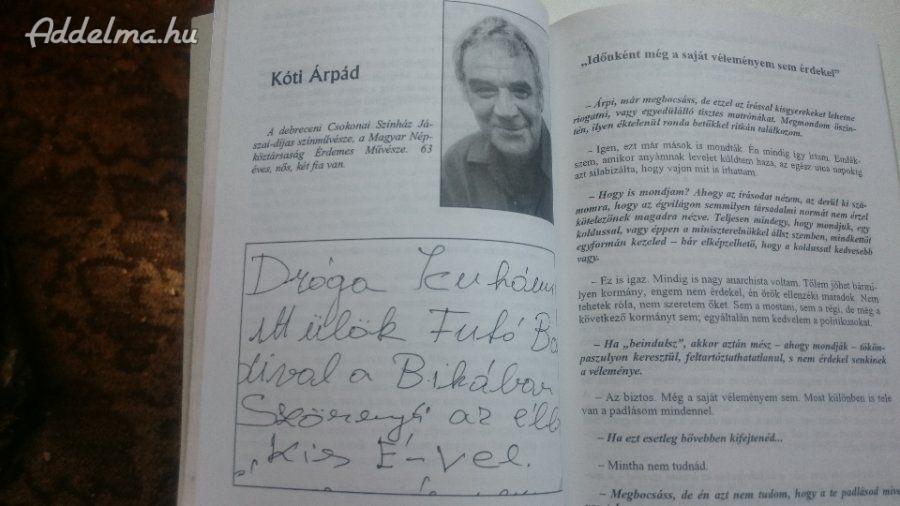 Addelma.hu
Kóti Árpád
A debreceni Csokonai Színház Já-
szai-díjas színművésze, a Magyar Nép-
köztársaság Érdemes Művésze. 63
éves, nős, két fia van.
Dróga
itt ülök Futó
a Bikában
az
"Kis É-vel.
„Időnként még a saját véleményem sem érdekel"
– Árpi, már megbocsáss, de ezzel az írással kisgyerekeket lehetne
riogatni, vagy egyedülálló tisztes matrónákat. Megmondom őszin-
tén, ilyen éktelenül ronda betűkkel ritkán találkozom.
– Igen, ezt már mások is mondták. Én mindig így írtam. Emlék-
szem, amikor anyámnak levelet küldtem haza, az egész utca napokig
azt silabizálta, hogy vajon mit is írhattam.
– Hogy is mondjam? Ahogy az írásodat nézem, az derül ki szá-
momra, hogy az égvilágon semmilyen társadalmi normát nem érzel
kötelezőnek magadra nézve. Teljesen mindegy, hogy mondjuk, egy
koldussal, vagy éppen a miniszterelnökkel állsz szemben, mindkettőt
egyformán kezeled – bár elképzelhető, hogy a koldussal kedvesebb
vagy.
– Ez is igaz. Mindig is nagy anarchista voltam. Tőlem jöhet bármi-
lyen kormány, engem nem érdekel, én örök ellenzéki maradok. Nem
tehetek róla, nem szeretem őket. Sem a mostani, sem a régi, de még a
következő kormányt sem; egyáltalán nem kedvelem a politikusokat.
– Ha „beindulsz", akkor aztán mész – ahogy mondják – tökön-
paszulyon keresztül, feltartóztathatatlanul, s nem érdekel senkinek
a véleménye.
– Az biztos. Még a saját véleményem sem. Most különben is tele
van a padlásom mindennel.
– Ha ezt esetleg bővebben kifejtenéd...
– Mintha nem tudnád.
– Megbocsáss, de én azt nem tudom, hogy a te padlásod